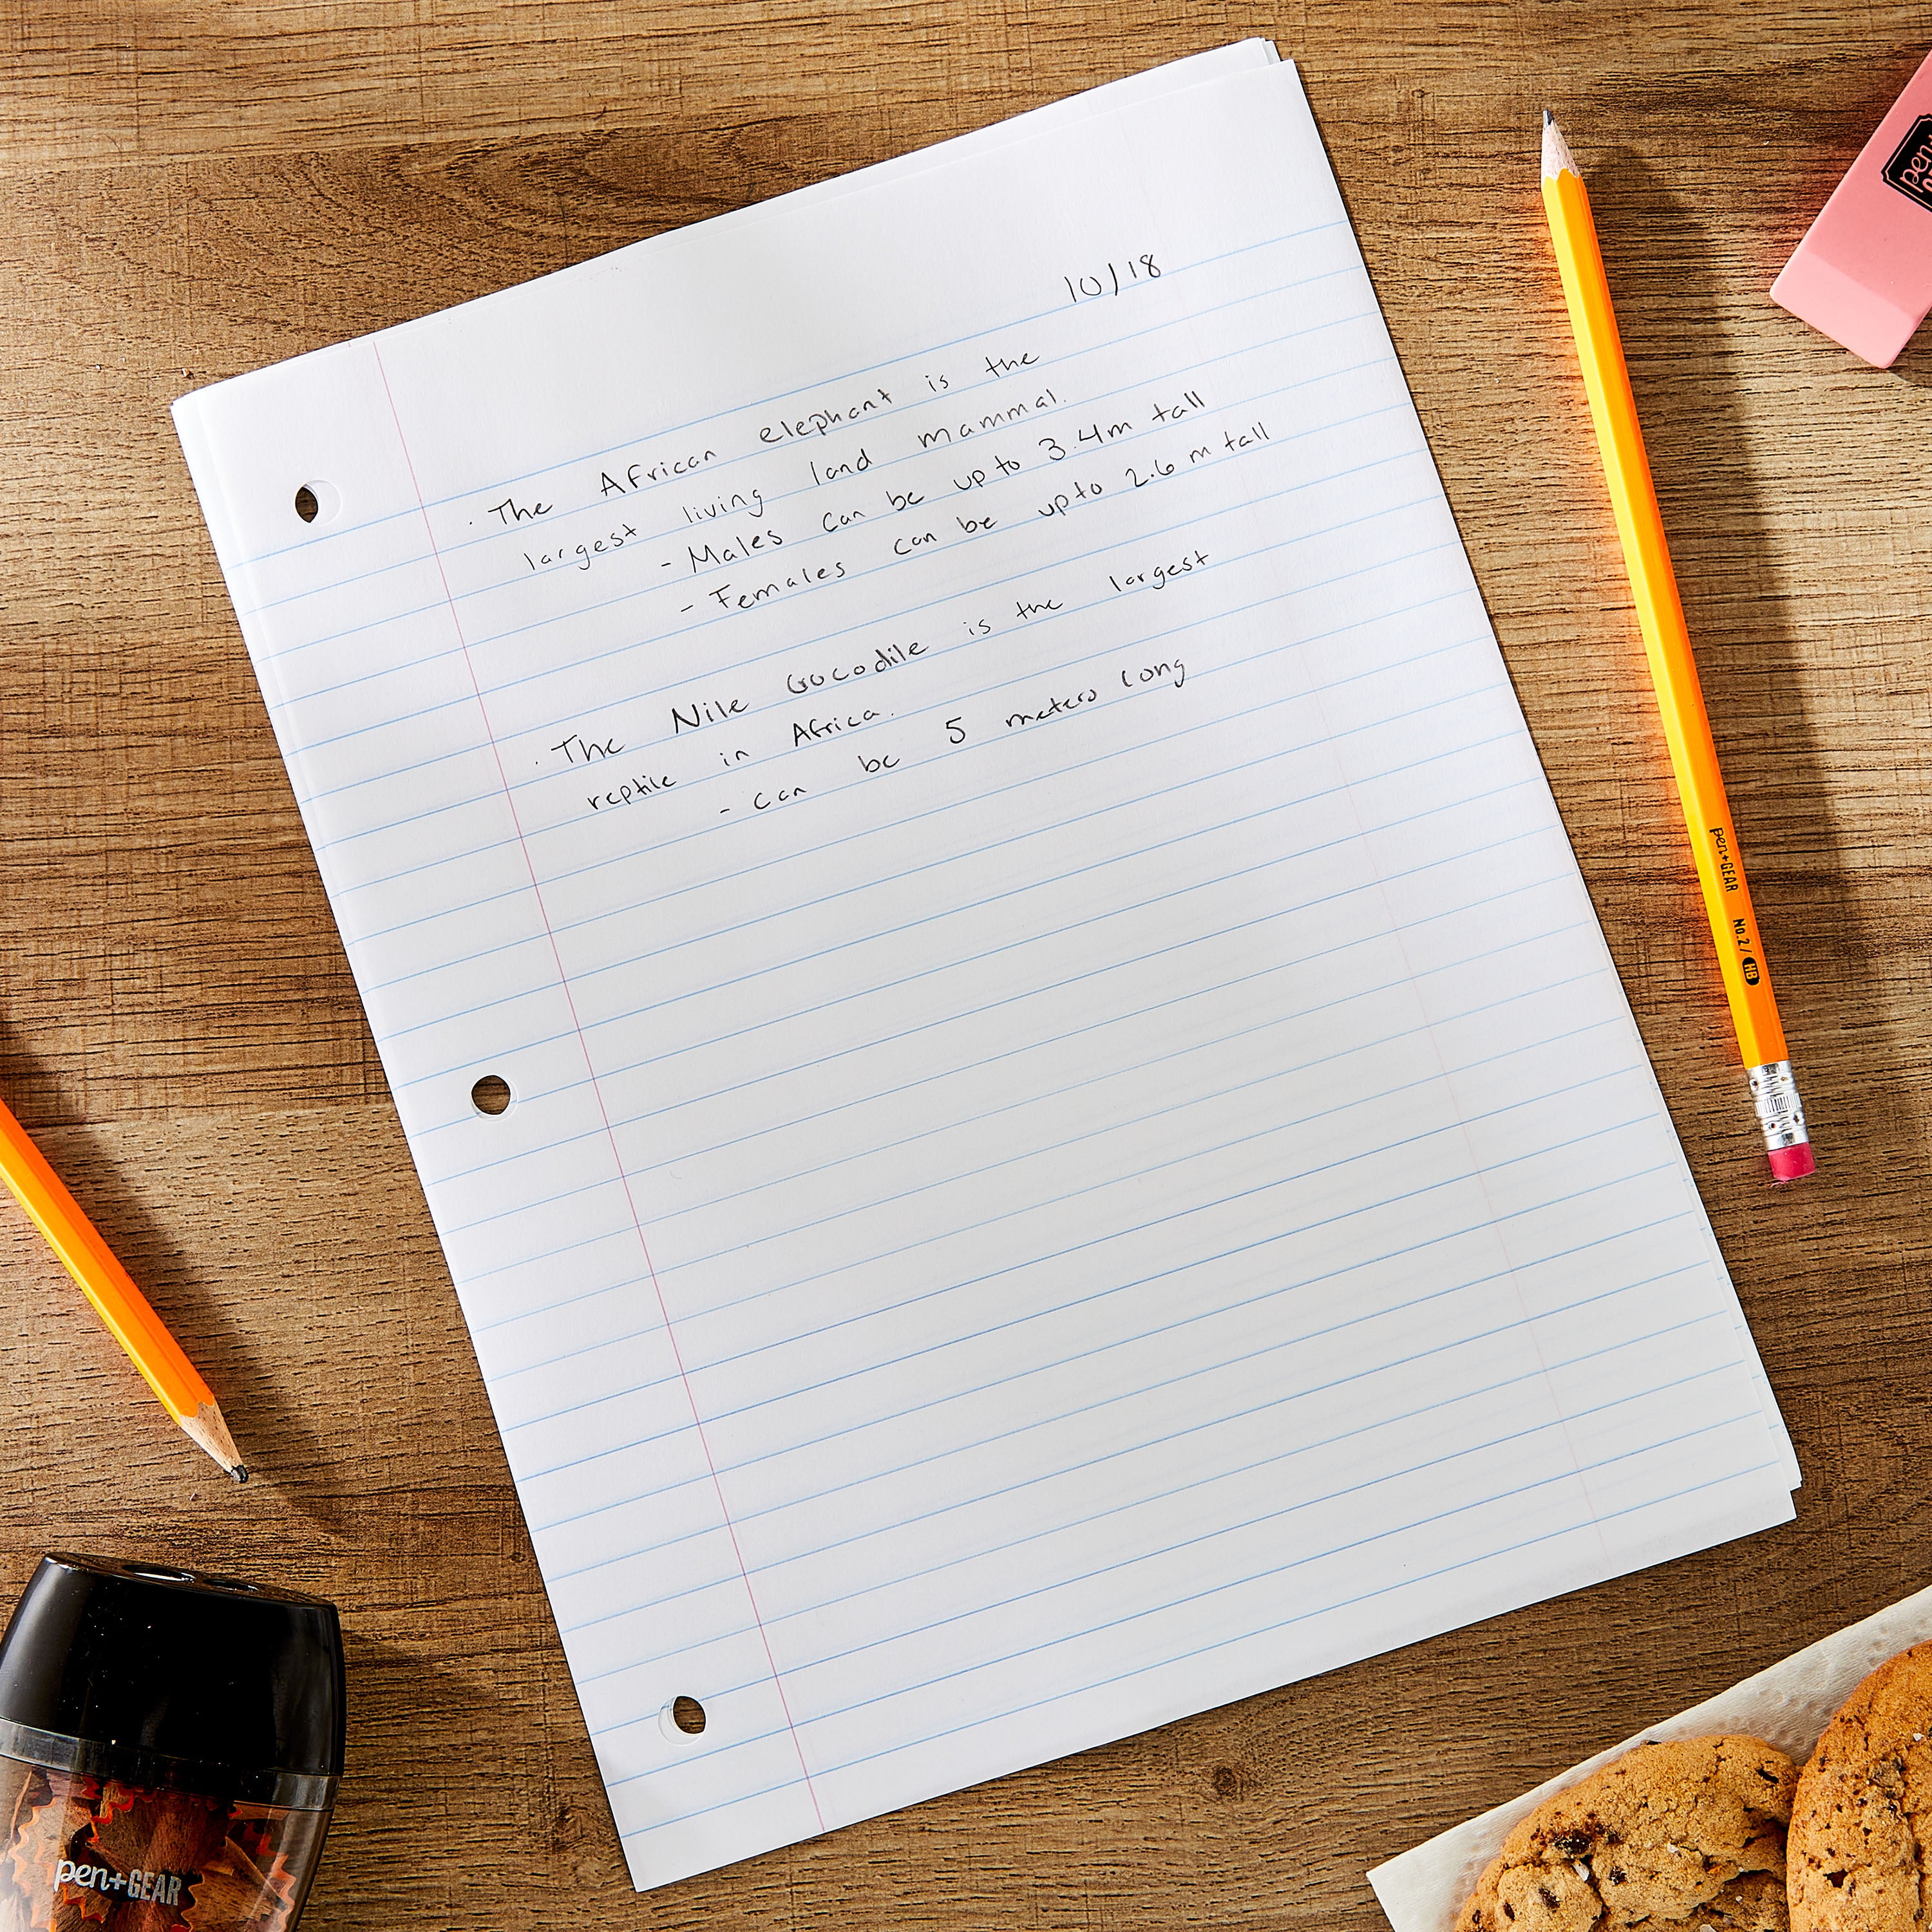 10/18
· The African elephant is the
largest living land mammal.
- Males can be up to 3.4m tall
- Females can be up to 2.6 m tall
· The Nile Crocodile is the largest
reptile in Africa.
- Can be 5 meters long
pen+GEAR No.2/HB
pen+GEAR